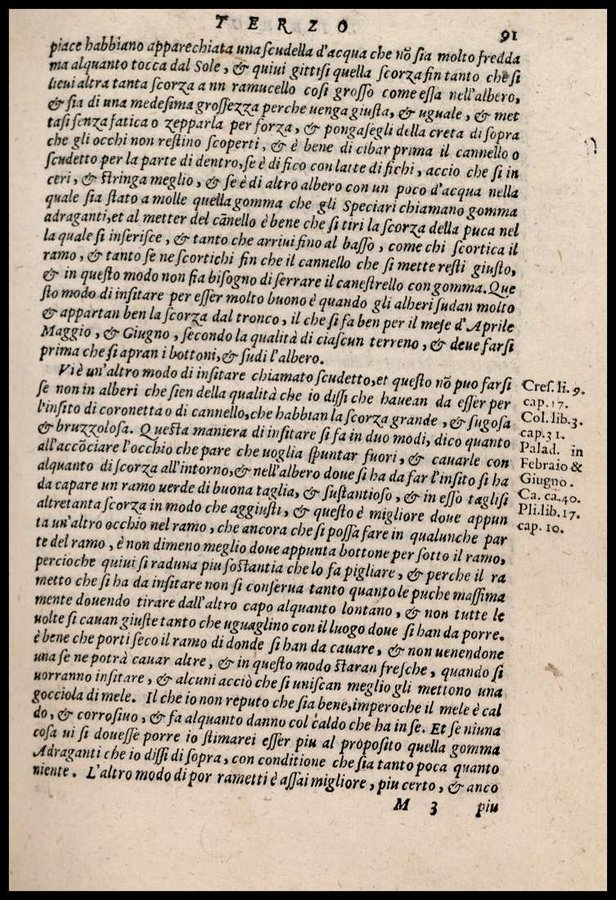 TERZO 91
piace habbiano apparechiata una scudella d'acqua che nõ sia molto fredda
ma alquanto tocca dal Sole, & quiui gittisi quella scorza fin tanto che si
lieui altra tanta scorza a nn ramucello cosi grosso come essa nell'albero,
& sia di una medesima grossezza perche uenga giusta, & uguale, & met
tasi senza fatica o zepparla per forza, & pongasegli della creta di sopra
che gli occhi non restino scoperti, & è bene di cibar prima il cannello o
scudetto per la parte di dentro, se è di fico con latte di fichi, accio che si in
ceri, & stringa meglio, & se è di altro albero con un poco d'acqua nella
quale sia stato a molle quella gomma che gli Speciari chiamano gomma
adraganti, et al metter del cãnello è bene che si tiri la scorza della puca nel
la quale si inserisce, & tanto che arriui fino al basso, come chi scortica il
ramo, & tanto se ne scortichi fin che il cannello che si mette resti giusto,
& in questo modo non fia bisogno di serrare il canestrello con gomma. Que
sto modo di insitare per esser molto buono è quando gli alberi sudan molto
& appartan ben la scorza dal tronco, il che si fa ben per il mese d'Aprile
Maggio, & Giugno, secondo la qualità di ciascun terreno, & deue farsi
prima che si apran i bottoni, & sudi l'albero.
Vi è un'altro modo di insitare chiamato scudetto, et questo nõ puo farsi
se non in alberi che sien della qualità che io dissi che hauean da esser per
l'insito di coronetta o di cannello, che habbian la scorza grande, & sugosa
& bruzzolosa. Questa maniera di insitare si fa in duo modi, dico quanto
all'accõciare l'occhio che pare che uoglia spuntar fuori, & cauarle con
alquanto di scorza all'intorno, & nell'albero doue si ha da far l'insito si ha
da capare un ramo uerde di buona taglia, & sustantioso, & in esso taglisi
altretanta scorza in modo che aggiusti, & questo è migliore doue appun
ta un'altro occhio nel ramo, che ancora che si possa fare in qualunche par
te del ramo, è non dimeno meglio doue appunta bottone per sotto il ramo,
percioche quiui si raduna piu sostantia che lo fa pigliare, & perche il ra
metto che si ha da insitare non si conserua tanto quanto le puche massima
mente douendo tirare dall'altro capo alquanto lontano, & non tutte le
uolte si cauan giuste tanto che uguaglino con il luogo doue si han da porre.
è bene che porti seco il ramo di donde si han da cauare, & non uenendone
una se ne potrà cauar altre, & in questo modo staran fresche, quando si
uorranno insitare, & alcuni acciò che si uniscan meglio gli mettono una
gocciola di mele. Il che io non reputo che sia bene, imperoche il mele è cal
do, & corrosiuo, & fa alquanto danno col caldo che ha in se. Et se niuna
cosa ui si douesse porre io stimarei esser piu al proposito quella gomma
Adraganti che io dissi di sopra, con conditione che sia tanto poca quanto
niente. L'altro modo di por rametti è assai migliore, piu certo, & anco
M 3 piu
Cres. li. 9.
cap. 17.
Col. lib. 3.
cap. 31.
Palad. in
Febraio &
Giugno.
Ca. ca. 40.
Pli. lib. 17.
cap. 10.